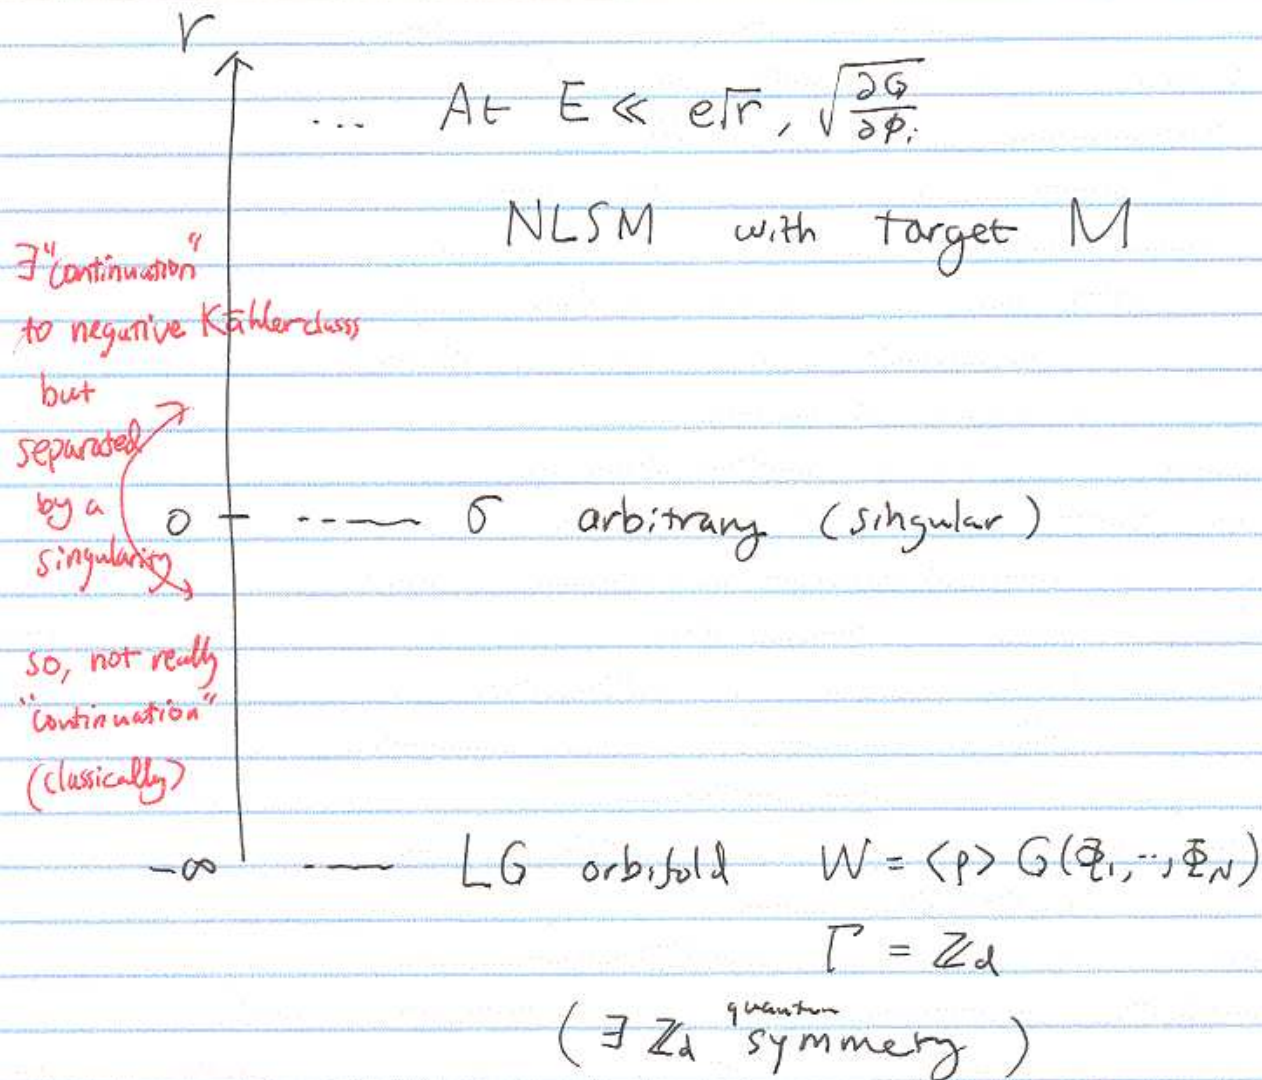 r
... At E ≪ e√r, √∂G/∂φᵢ
NLSM with target M
∃"continuation"
to negative Kählerclass
but
separated
by a
singularity
0 ---- σ arbitrary (singular)
so, not really
"continuation"
(classically)
-∞ ---- LG orbifold W = <p> G(Φ₁,..,Φ_N)
Γ = ℤ_d
(∃ ℤ_d quantum symmetry)